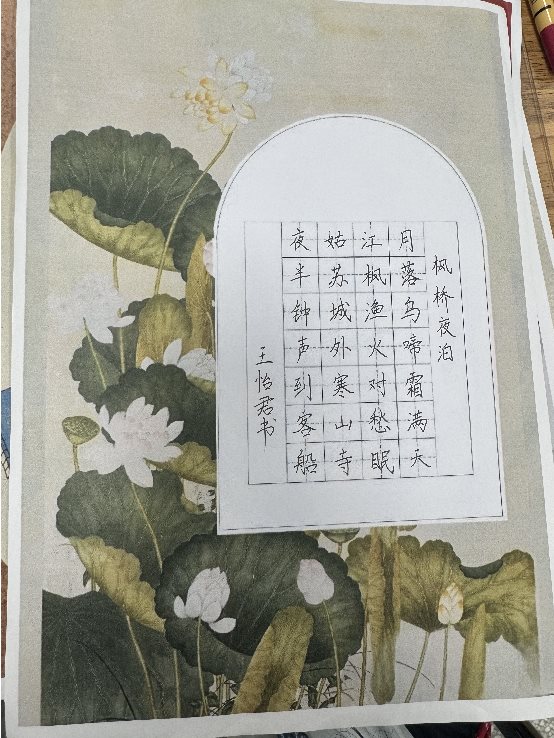 枫桥夜泊
月落乌啼霜满天
江枫渔火对愁眠
姑苏城外寒山寺
夜半钟声到客船
王怡君书